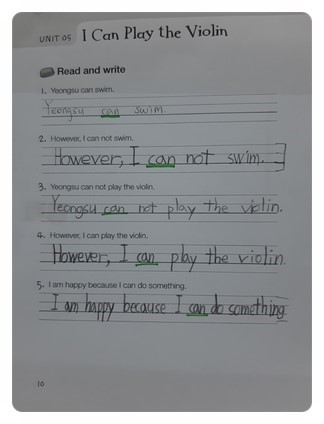 UNIT 05 I Can Play the Violin
Read and write
1. Yeongsu can swim.
Yeongsu can swim.
2. However, I can not swim.
However, I can not swim.
3. Yeongsu can not play the violin.
Yeongsu can not play the violin.
4. However, I can play the violin.
However, I can play the violin.
5. I am happy because I can do something.
I am happy because I can do something.
10